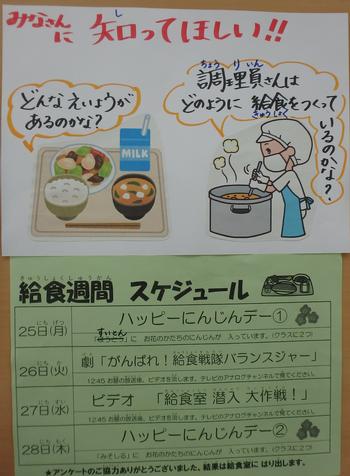 みなさんに 知ってほしい!!
どんなえいようが
あるのかな?
MILK
調理員さんは
どのように 給食をつくって
いるのかな?
給食週間 スケジュール
25日(月) ハッピーにんじんデー①
「すいとん」に お花のかたちのにんじんが 入っています。(クラスに2つ)
26日(火) 劇「がんばれ!給食戦隊バランスジャー」
12:45 お昼の放送後、ビデオを流します。テレビのアナログチャンネルで見てください。
27日(水) ビデオ 「給食室 潜入 大作戦!」
12:45 お昼の放送後、ビデオを流します。テレビのアナログチャンネルで見てください。
28日(木) ハッピーにんじんデー②
「みそしる」に お花のかたちのにんじんが 入っています。(クラスに2つ)
★アンケートのご協力ありがとうございました。結果は給食室に はり出します。